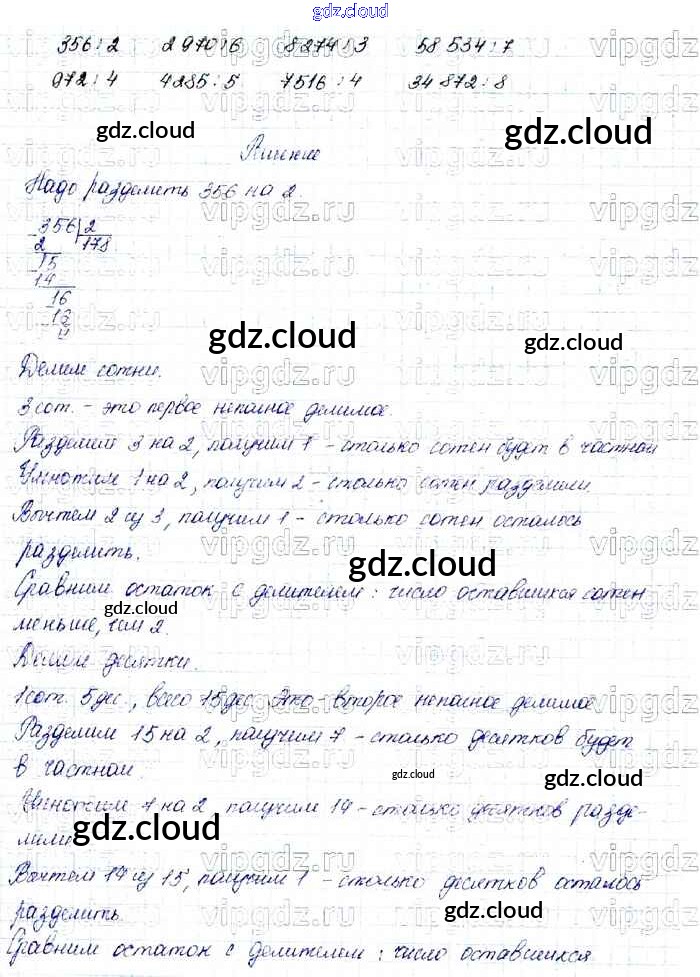 gdz.cloud
356:2 2970:6 8274:3 58 534:7
972:4 4285:5 7516:4 34 872:8
gdz.cloud gdz.cloud
Решение
Надо разделить 356 на 2.
356 2
2 178
15
14
16
16
gdz.cloud gdz.cloud
Делим сотни.
3 сот. - это первое неполное делимое.
Разделим 3 на 2, получим 1 - столько сотен будет в частном
Умножим 1 на 2, получим 2 - столько сотен разделили
Вычтем 2 из 3, получим 1 - столько сотен осталось
разделить.
gdz.cloud
Сравним остаток с делителем: число оставшихся сотен
gdz.cloud
меньше, чем 2.
Делим десятки.
1 сот. 5 дес., всего 15 дес. Это второе неполное делимое
Разделим 15 на 2, получим 7 - столько десятков будет
в частном.
gdz.cloud gdz.cloud
Умножим 7 на 2, получим 14 - столько десятков разде-
лили
gdz.cloud
Вычтем 14 из 15, получим 1 - столько десятков осталось
разделить.
gdz.cloud
Сравним остаток с делителем: число оставшихся